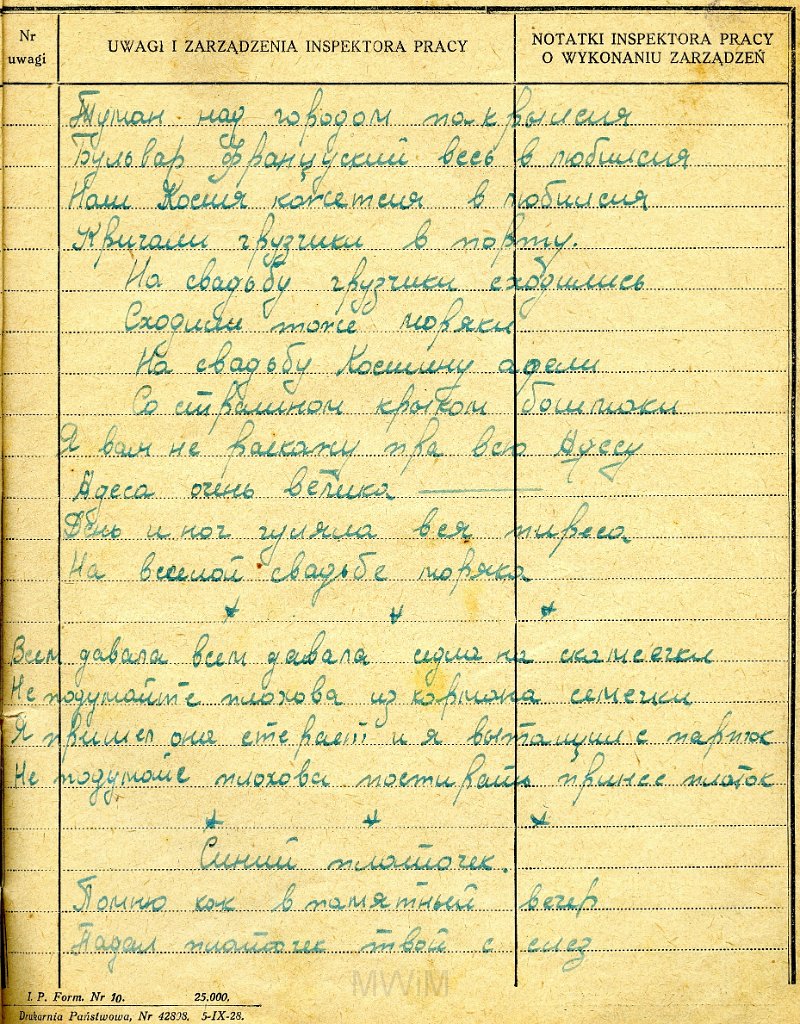 Nr
uwagi
UWAGI I ZARZĄDZENIA INSPEKTORA PRACY
NOTATKI INSPEKTORA PRACY
O WYKONANIU ZARZĄDZEŃ
Туман над городом пакрылсия
Бульвар Французский весь в любилсия
Наш Косия кожетсия в любилсия
Кричали грузчики в порту.
На свадьбу грузчики сходились
Сходили тоже моряки
На свадьбу Костину адели
Со страшном крыком башмаки
Я вам не раскажу пра всю Адесу
Адеса очень велика
День и ноч гуляла вся Переса
На веселой свадьбе моряка
Всем давала всем давала седла на скамеечки
Не подумайте плохова из кормана семечки
Я пришел она стерает и я вытащил с парток
Не подумайе плохова постирать принес платок
Синий платочек.
Помню как в памятный вечер
Падал платочек твой с слез
MWiM
I. P. Form. Nr 10. 25.000.
Drukarnia Państwowa, Nr 42898. 5-IX-28.